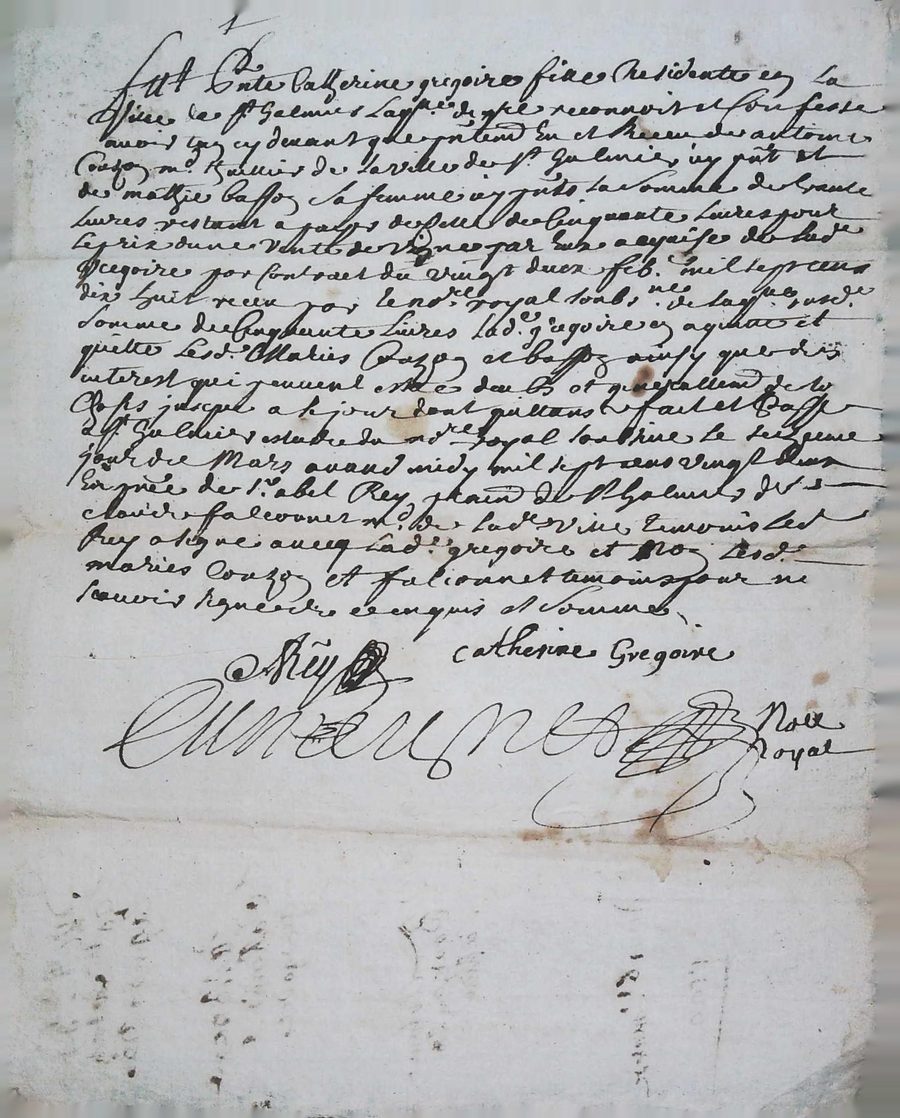 fut pnte Catherine gregoire fille Residente en La
Ville de St Galmier Laqlle de gré reconnoit et Confesse
avoir cy devant que pntemt Eu et Receu de antoine
Couzon md huillier de La ville de St Galmier icy pnt et
de mathie basson sa femme icy pnte La somme de trante
Livres restant a payer de Celle de Cinquante Livres pour
Le prix dune Vente de Vigne par Eux acquise de Lade
gregoire par Contract du vingt deux feb. mil sept cens
dix huit receu par le nore royal soubs.ne de Laqlle susde
Somme de Cinquante Livres Lade gregoire en a quitté et
quitte Lesds Mariés Couzon et basson ainsy que des
interest qui peuvent estre deubs et generallemt de to
Choses jusque a ce jour dont quittance fait et Passé
a St Galmier estude du nore royal soubsigné Le seizieme
jour de Mars avand midy mil sept cens vingt deux
En pnce de Sr abel Rey de St Galmier & Sr
claude falconnet md de Lade ville temoins Led
Rey a signé avecq Lade gregoire et Non Lesds
mariés Couzon et falconnet temoins pour ne
scavoir signer de ce enquis et Sommé
ARey Catherine Gregoire
Nore
Royal